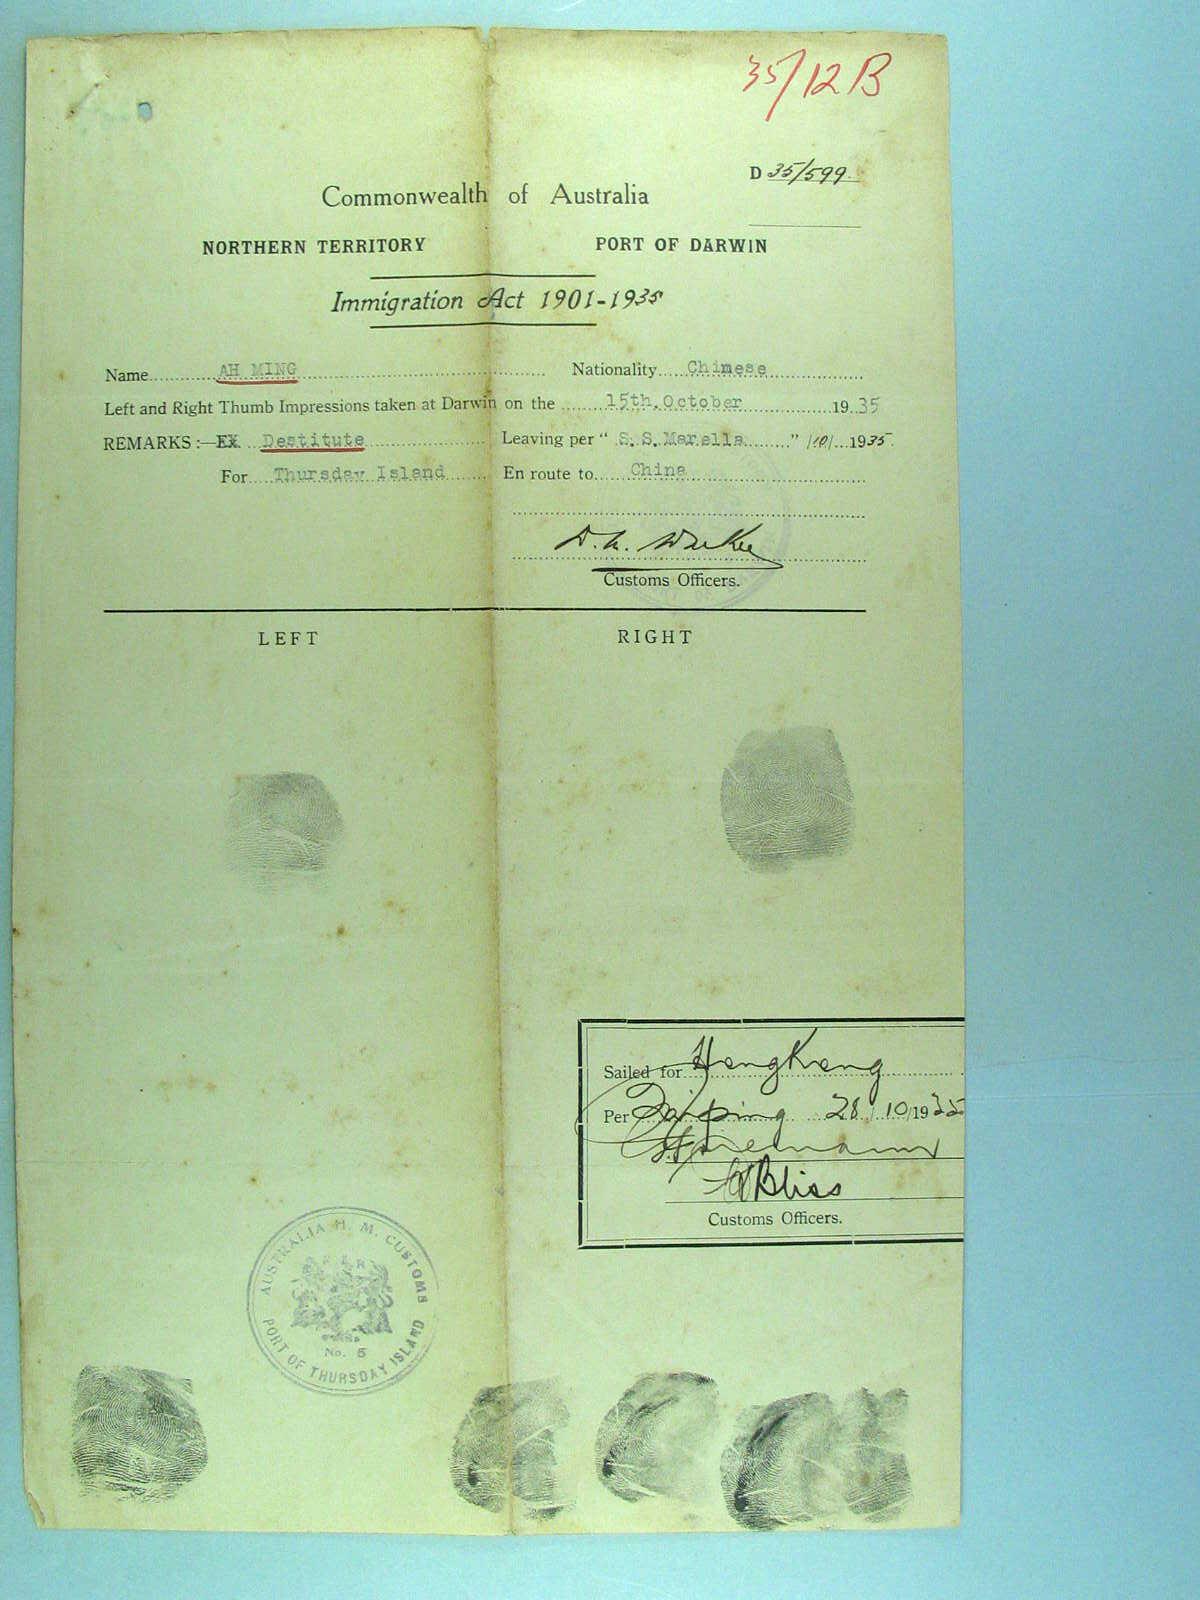 35/12B
D 35/599
Commonwealth of Australia
NORTHERN TERRITORY PORT OF DARWIN
Immigration Act 1901-1935
Name AH MING Nationality Chinese
Left and Right Thumb Impressions taken at Darwin on the 15th. October 1935
REMARKS :— EX Destitute Leaving per " S.S. Marella " /10/ 1935
For Thursday Island En route to China
Customs Officers.
LEFT RIGHT
Sailed for HongKong
Per Taiping 28/10/1935
Bliss
Customs Officers.
AUSTRALIA H. M. CUSTOMS
No. 5
PORT OF THURSDAY ISLAND